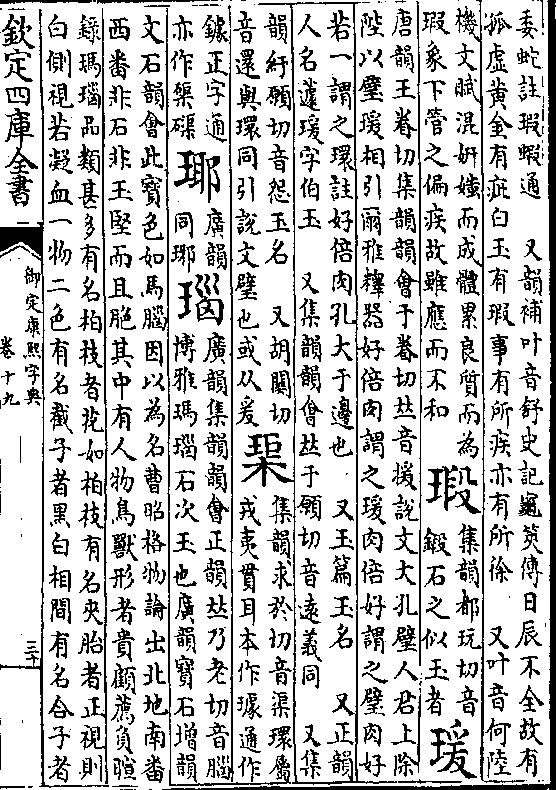 委蛇註瑕蝦通 又韻補叶音舒史記龜筴傳日辰不全故有
孤虛黃金有疵白玉有瑕事有所疾亦有所徐 又叶音何陸
機文賦混妍媸而成體累良質而為
瑕象下管之偏疾故雖應而不和
瑖
集韻都玩切音
鍛石之似玉者
瑗
唐韻王眷切集韻韻會于眷切𠀤音援說文大孔璧人君上除
陛以璧瑗相引爾雅釋器好倍肉謂之瑗肉倍好謂之璧肉好
若一謂之環註好倍肉孔大于邊也 又玉篇玉名 又正韻
人名蘧瑗字伯玉 又集韻韻會𠀤于願切音遠義同 又集
韻紆願切音怨玉名 又胡關切
音還與環同引說文璧也或从爰
璖
集韻求於切音渠環屬
戎夷貫耳本作璩通作
鐻正字通
亦作渠磲
瑘
廣韻
同琊
瑙
廣韻集韻韻會正韻𠀤乃老切音腦
博雅瑪瑙石次玉也廣韻寶石增韻
文石韻會此寶色如馬腦因以為名曹昭格物論出北地南番
西番非石非玉堅而且脆其中有人物鳥獸形者貴顧薦負暄
錄瑪瑙品類甚多有名柏枝者花如柏枝有名夾胎者正視則
白側視若凝血一物二色有名截子者黑白相間有名合子者
欽定四庫全書
御定康熙字典
卷十九
三十